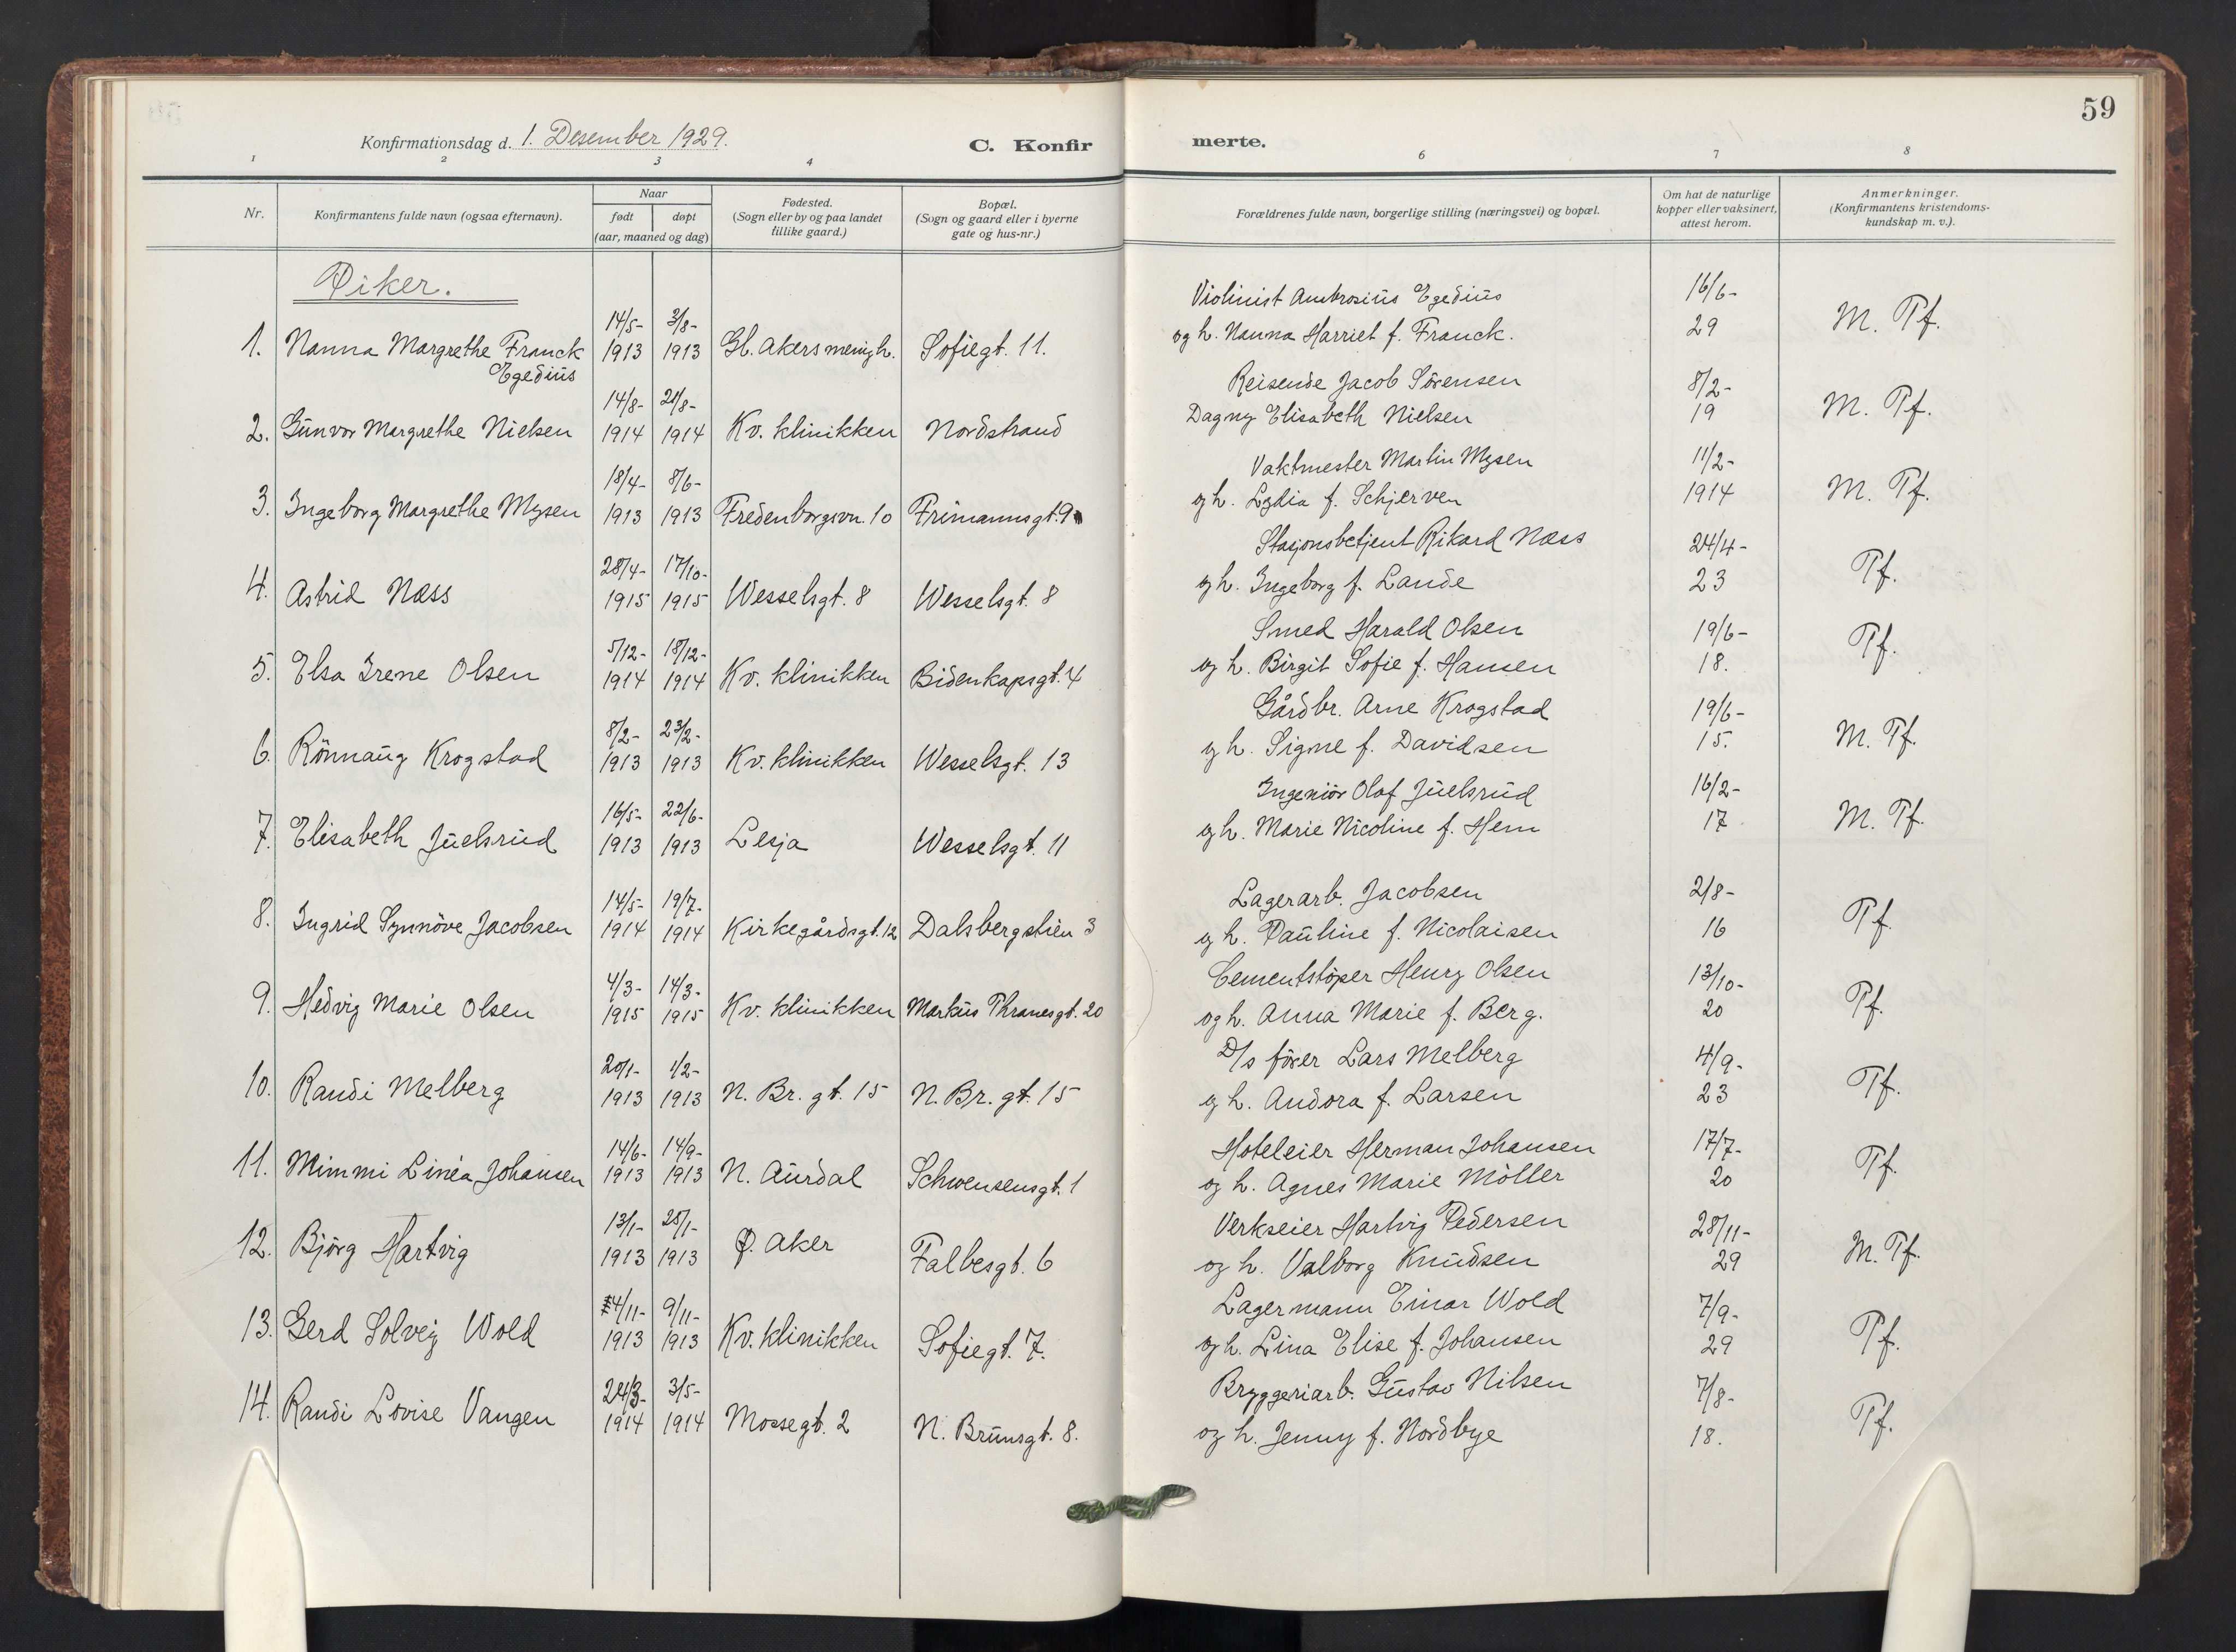 59
Konfirmationsdag d. 1. Desember 1929. C. Konfir merte.
1 2 3 4 6 7 8
Nr. Konfirmantens fulde navn (ogsaa efternavn). Naar født døpt (aar, maaned og dag) Fødested. (Sogn eller by og paa landet tillike gaard.) Bopæl. (Sogn og gaard eller i byerne gate og hus-nr.) Forældrenes fulde navn, borgerlige stilling (næringsvei) og bopæl. Om hat de naturlige kopper eller vaksinert, attest herom. Anmerkninger. (Konfirmantens kristendoms-kundskap m. v.).
Piker.
14/5- 3/8- Violinist Ambrosius Egedius 16/6-
1. Nanna Margrethe Franck 1913 1913 Gl. Akers menigh. Sofiegt. 11. og h. Nanna Harriet f. Franck. 29 M. Pf.
Egedius
14/8- 21/8- Reisende Jacob Sörensen 8/2-
2. Gunvor Margrethe Nielsen 1914 1914 Kv. klinikken Nordstrand Dagny Elisabeth Nielsen 19 M. Pf.
18/4- 8/6- Vaktmester Martin Mysen 11/2-
3. Ingeborg Margrethe Mysen 1913 1913 Fredenborgsvn. 10 Frimannsgt. 9 og h. Lydia f. Schjerven 1914 M. Pf.
28/4- 17/10- Stasjonsbetjent Rikard Næss 24/4-
4. Astrid Næss 1915 1915 Wesselsgt. 8 Wesselsgt. 8 og h. Ingeborg f. Lande 23 Pf.
5/12- 18/12- Smed Harald Olsen 19/6-
5. Elsa Irene Olsen 1914 1914 Kv. klinikken Bidenkapsgt. 4 og h. Birgit Sofie f. Hansen 18. Pf.
8/2- 23/2- Gårdbr. Arne Krogstad 19/6-
6. Rönnaug Krogstad 1913 1913 Kv. klinikken Wesselsgt. 13 og h. Signe f. Davidsen 15. M. Pf.
16/5- 22/6- Ingeniör Olaf Juelsrud 16/2-
7. Elisabeth Juelsrud 1913 1913 Lesja Wesselsgt. 11 og h. Marie Nicoline f. Hem 17 M. Pf.
14/5- 19/7- Lagerarb. Jacobsen 2/8-
8. Ingrid Synnöve Jacobsen 1914 1914 Kirkegårdsgt. 12 Dalsbergstien 3 og h. Pauline f. Nicolaisen 16 Pf.
4/3- 14/3- Cementstöper Henry Olsen 13/10-
9. Hedvig Marie Olsen 1915 1915 Kv. klinikken Markus Thranesgt. 20 og h. Anna Marie f. Berg. 20 Pf.
20/1- 1/2- D/s förer Lars Melberg 4/9-
10. Randi Melberg 1913 1913 N. Br. gt. 15 N. Br. gt. 15 og h. Andora f. Larsen 23 Pf.
14/6- 14/9- Hoteleier Herman Johansen 17/7-
11. Mimmi Linéa Johansen 1913 1913 N. Aurdal Schwensensgt. 1 og h. Agnes Marie Möller 20 Pf.
13/1- 25/1- Verkseier Hartvig Pedersen 28/11-
12. Björg Hartvig 1913 1913 Ø. Aker Falbesgt. 6 og h. Valborg Knudsen 29 M. Pf.
4/11- 9/11- Lagermann Einar Wold 7/9-
13. Gerd Solveig Wold 1913 1913 Kv. klinikken Sofiegt. 7. og h. Lina Elise f. Johansen 29 Pf.
24/3- 3/5- Bryggeriarb. Gustav Nilsen 7/8-
14. Randi Lovise Vangen 1914 1914 Mossegt. 2 N. Brunsgt. 8. og h. Jenny f. Nordbye 18. Pf.